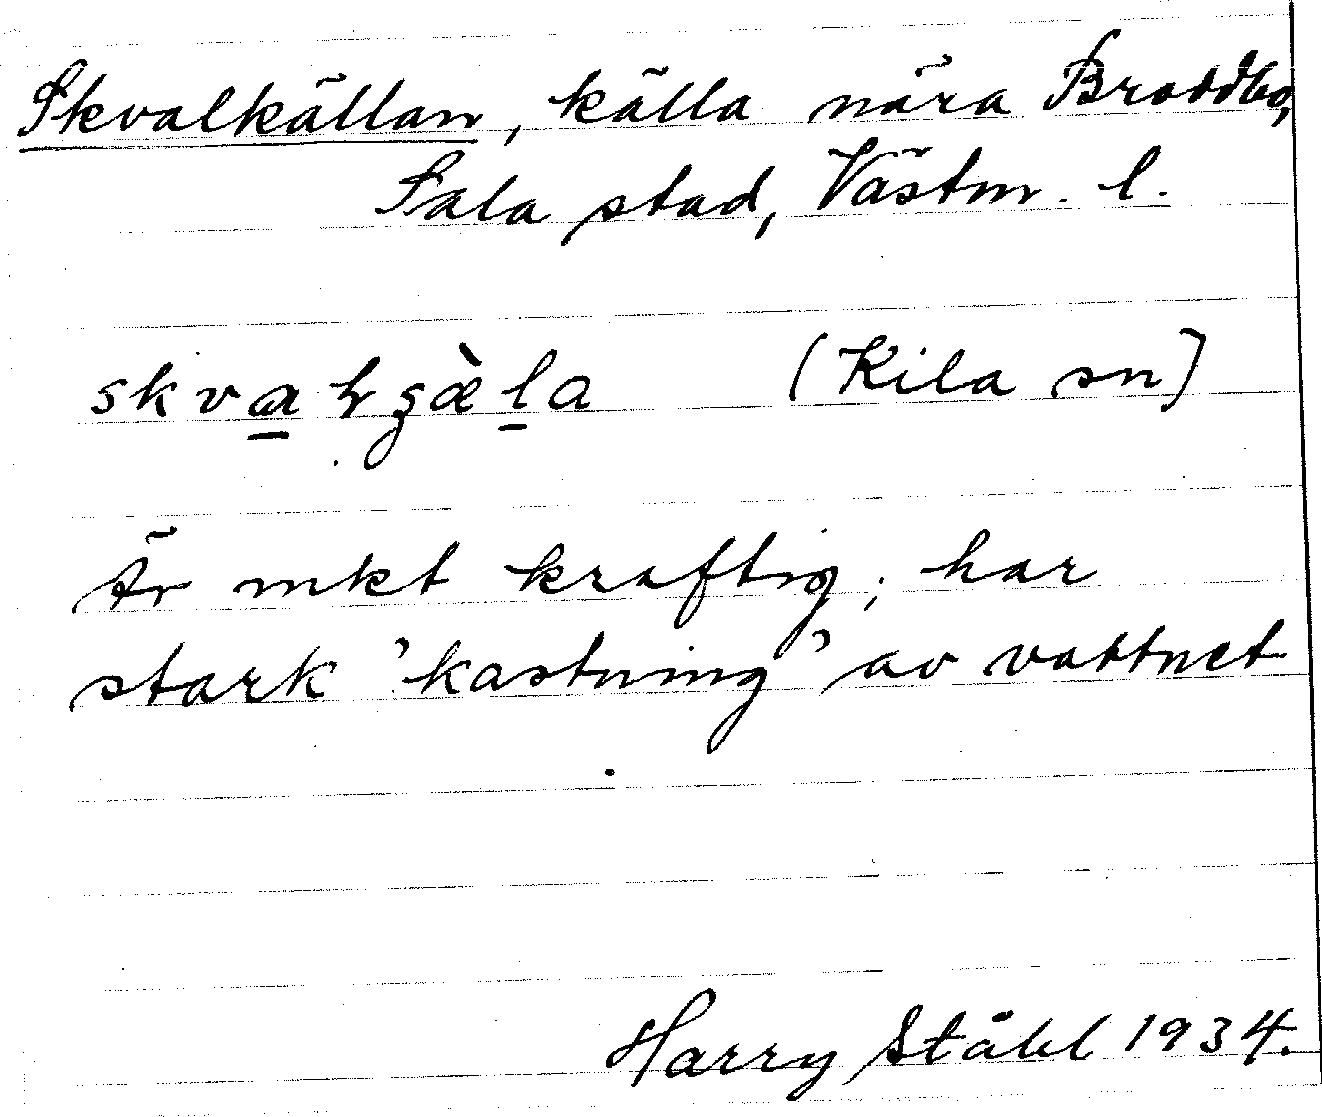 Skvalkällan, källa nära Broddbo,
Sala stad, Västm. l.
(Kila sn)
Är mkt kraftig; har
stark 'kastning' av vattnet
Harry Ståhl 1934.